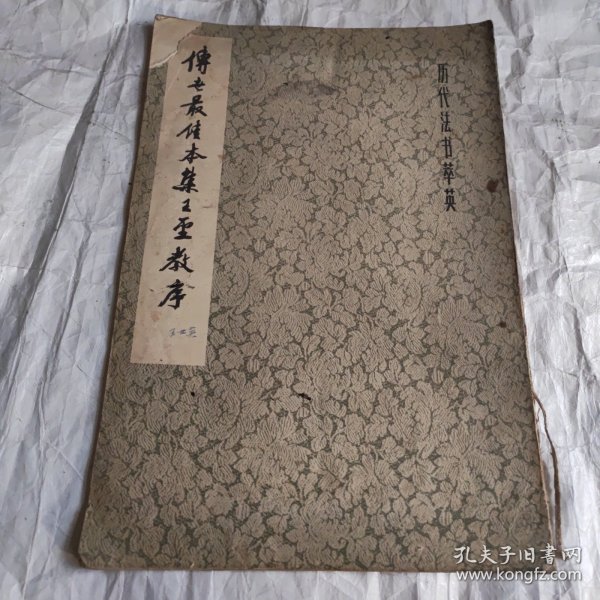 历代法书萃英
傳世最佳本集王聖教序
孔夫子旧書网
www.kongfz.com